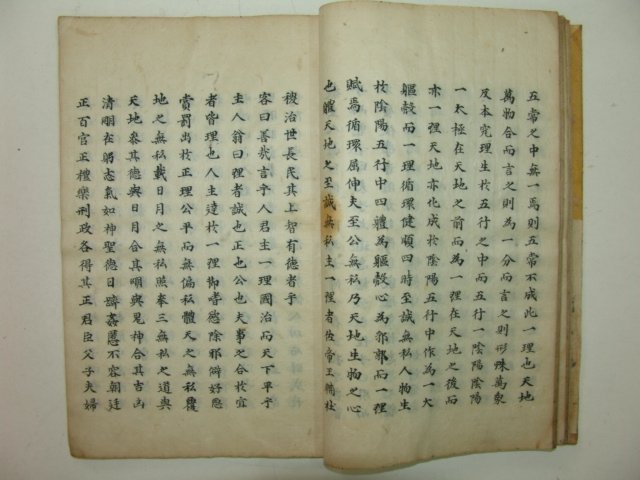 五常之中無一焉則五常不成此一理也天地
萬物合而言之則為一分而言之則形殊萬象
反本完理生於五行之中而五行一陰陽陰陽
一太極在天地之前而為一理在天地之後而
亦一理天地亦化成於陰陽五行中作為一大
軀殼而一理循環健順四時至誠無私人物生
於陰陽五行中四軆為軀殼心為郛郭而一理
賦焉循環屈伸夫至公無私乃天地生物之心
也軆天地之至誠無私主一理者佐帝王輔社
稷治世長民其上智有德者乎
客曰善哉言乎人君主一理國治而天下平乎
主人翁曰理者誠也正也公也夫事之合於宜
者皆理也人主達於一理御嗜慾除邪僻好惡
賞罰出於正理公平而無偏私軆天之無私覆
地之無私載日月之無私照奉三無私之道與
天地叅其德與日月合其明與鬼神合其吉凶
清明在躬志氣如神聖德日躋姦慝不容朝廷
正百官正禮樂刑政各得其正君臣父子夫婦